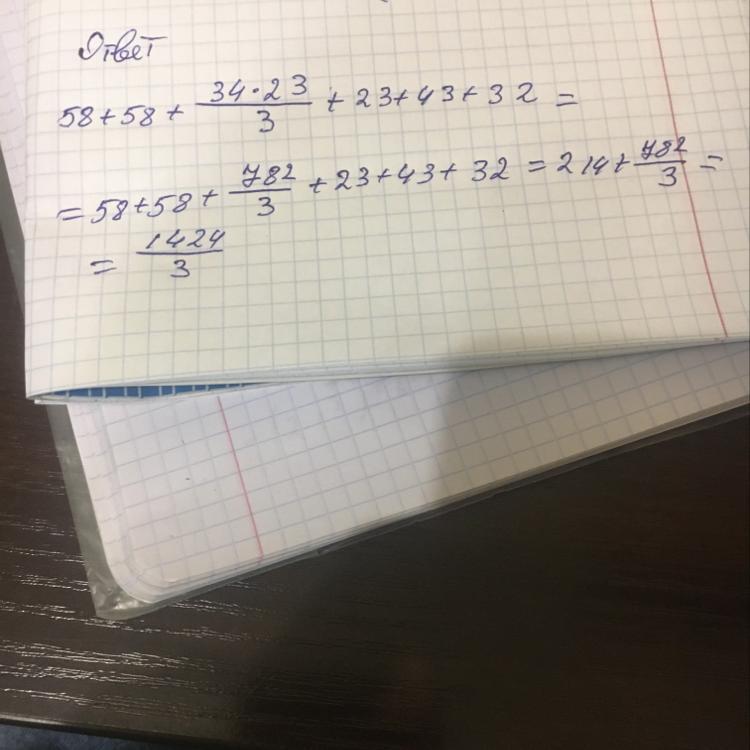 Ответ
58+58+ \frac{34·23}{3} +23+43+32 =
=58+58+ \frac{782}{3} +23+43+32 =214+ \frac{782}{3} =
= \frac{1424}{3}